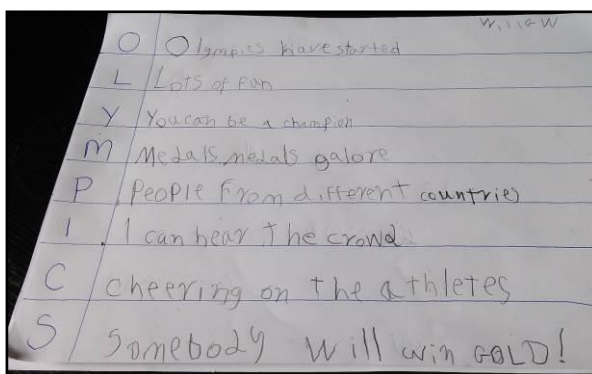 Will GW
O Olympics have started
L Lots of fun
Y You can be a champion
M Medals, medals galore
P People from different countries
I I can hear the crowd
C Cheering on the athletes
S Somebody will win GOLD!